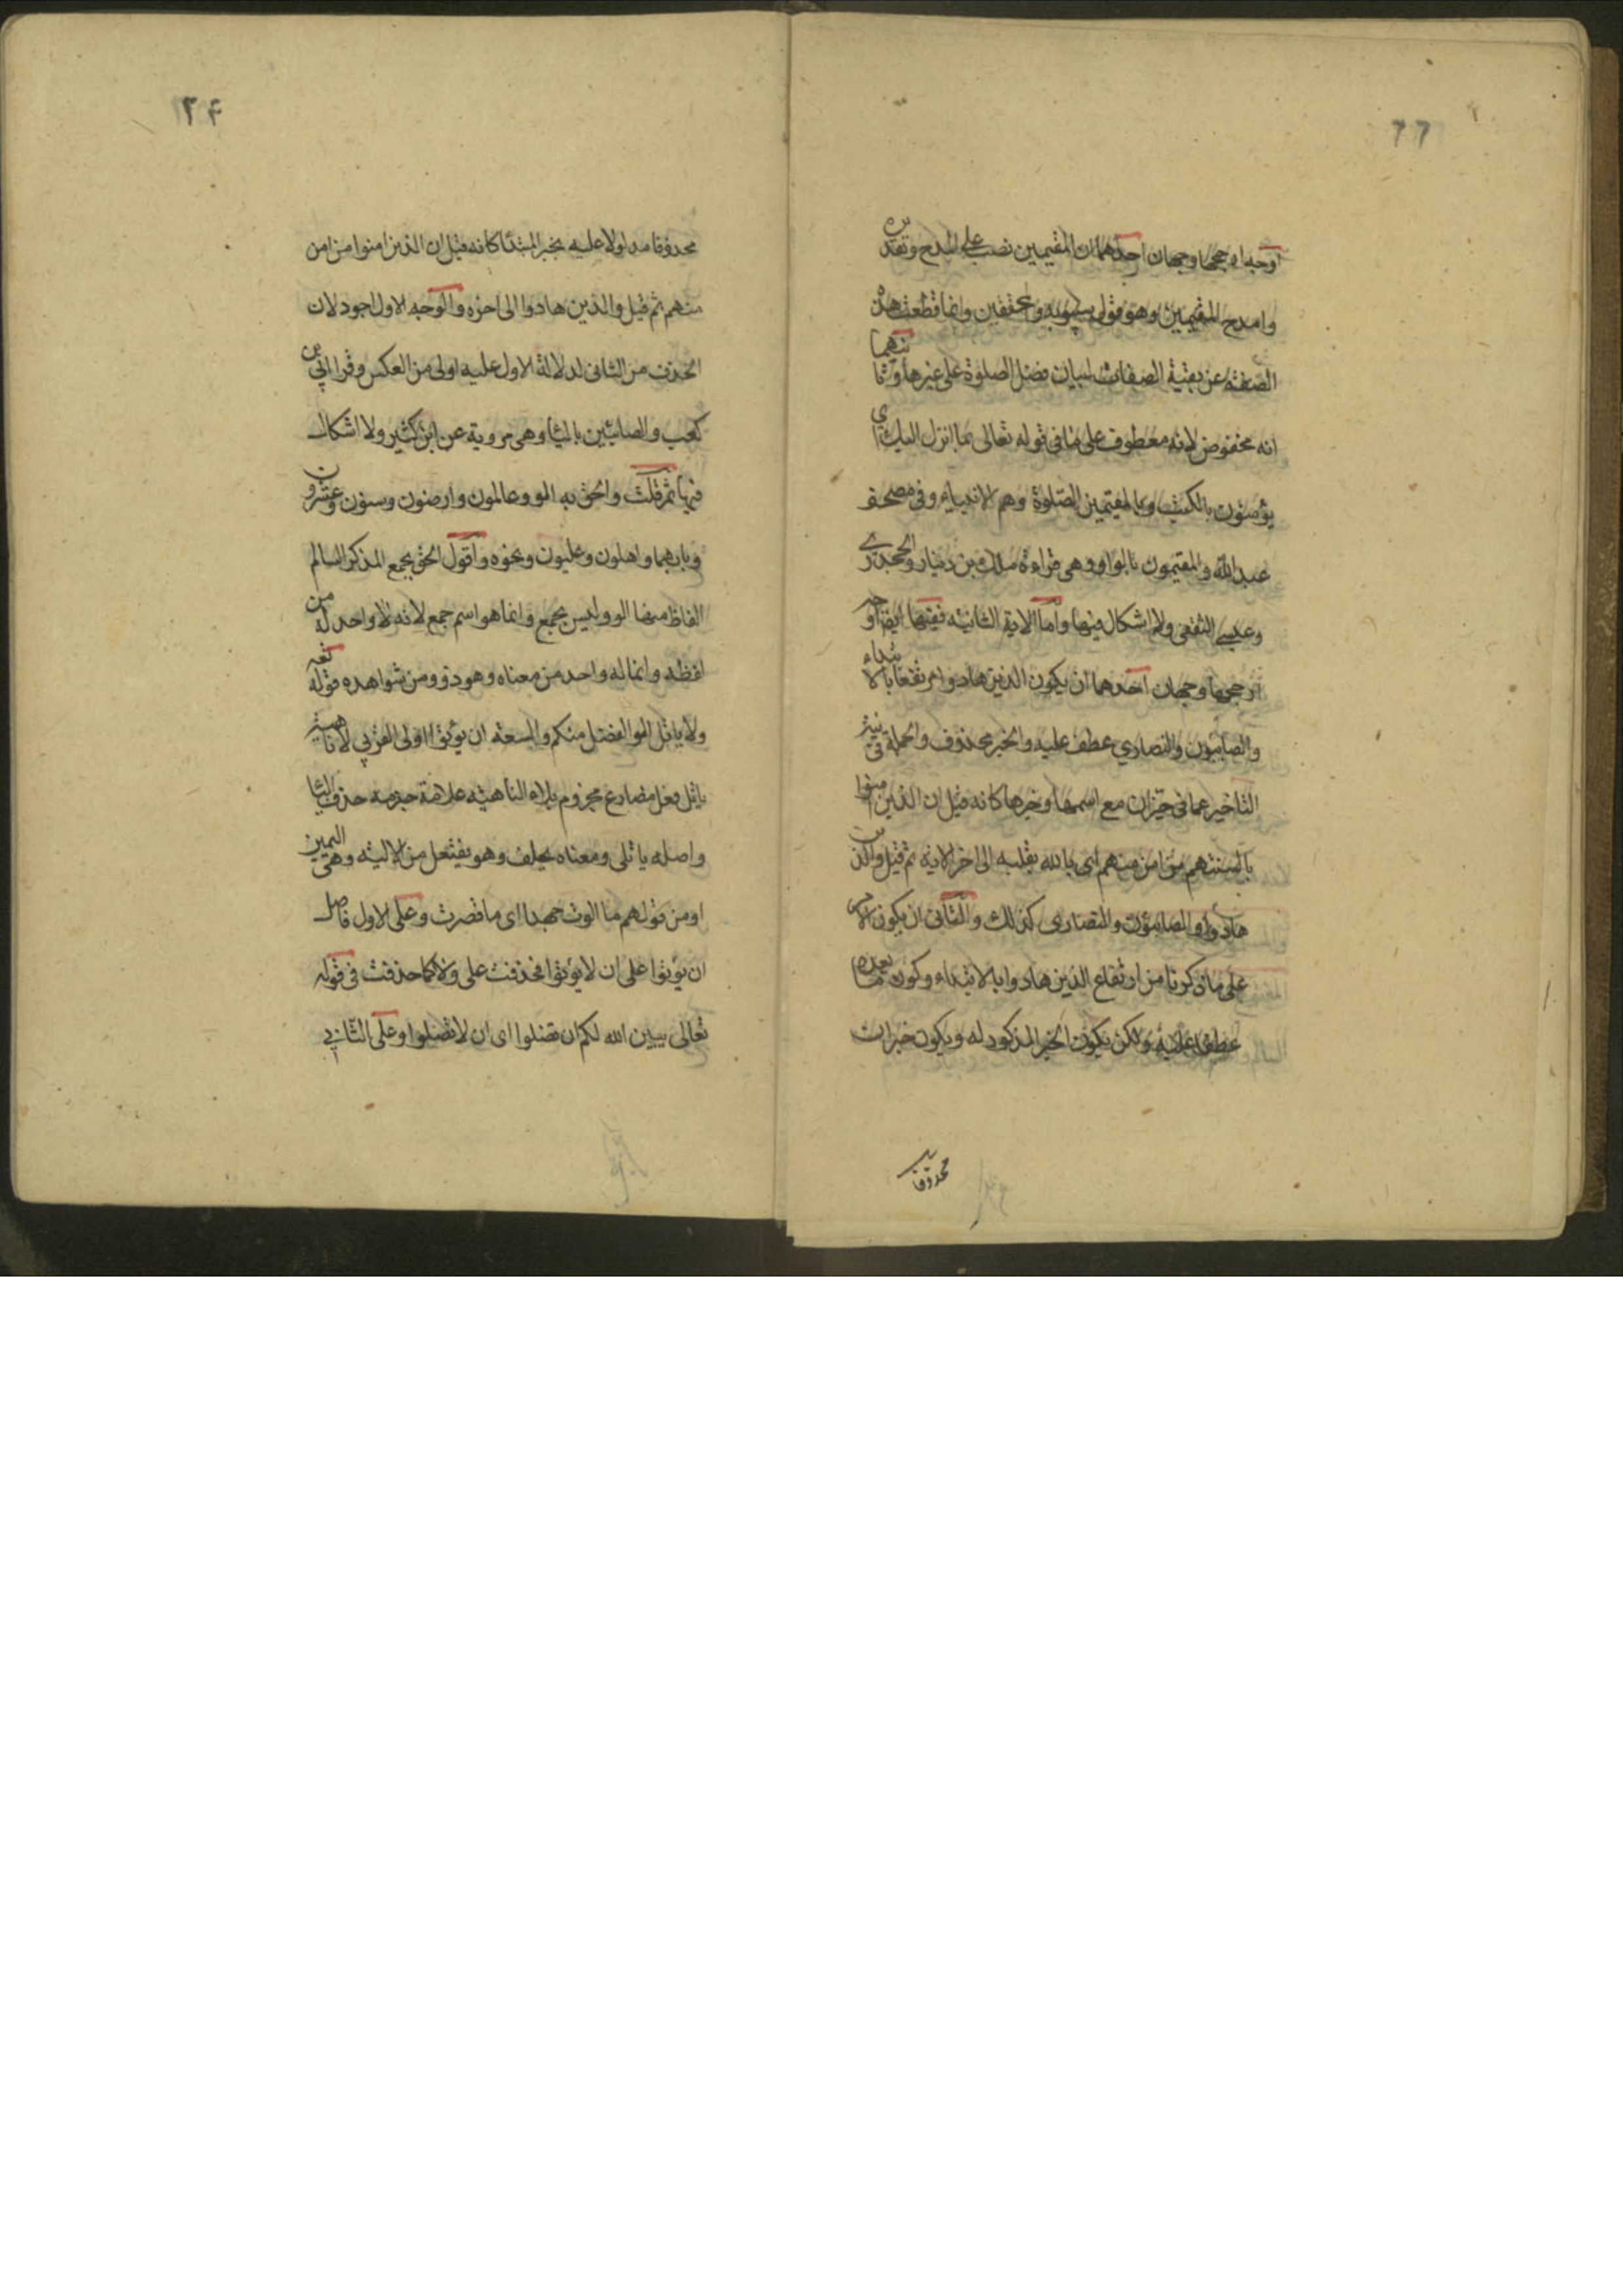 ٦٦
اوجه ارجحها وجهان احدهما ان المقيمين نصب على المدح وتقديره
وامدح المقيمين وهو قول سيبويه والمحققين وانما قطعت هذه
الصفة عن بقية الصفات لبيان فضل الصلوة على غيرها وثانيهما
انه مخفوض لانه معطوف على ما فى قوله تعالى بما انزل اليك اى
يؤمنون بالكتب وبالمقيمين الصلوة وهم الانبياء وفى مصحف
عبد الله والمقيمون بالواو وهى قراءة مالك بن دينار والجحدرى
وعيسى الثقفى ولا اشكال فيها واما الاية الثانية ففيها ايضا اوجه
ارجحها وجهان احدهما ان يكون الذين هادوا مرتفعا بالابتداء
والصابئون والنصارى عطف عليه والخبر محذوف والجملة فى نية
التاخير عما فى حيز ان مع اسمها وخبرها كانه قيل ان الذين امنوا
بالسنتهم من امن منهم اى بالله بقلبه الى اخر الاية ثم قيل والذين
هادوا والصابئون والنصارى كذلك والثانى ان يكون الامر
على ما ذكرنا من ارتفاع الذين هادوا بالابتداء وكون ما بعده
عطفا عليه ولكن يكون الخبر المذكور له ويكون خبر ان
محذوفا
٢٤
محذوفا مدلولا عليه بخبر المبتدا كانه قيل ان الذين امنوا من امن
منهم ثم قيل والذين هادوا الى اخره والوجه الاول اجود لان
الحذف من الثانى لدلالة الاول عليه اولى من العكس وقرا ابى بن
كعب والصابئين باليا وهى مروية عن ابن كثير ولا اشكال
فيها ثم قلت والحق به الو وعالمون وارضون وسنون وعشرون
وبابهما واهلون وعليون ونحوه واقول الحق بجمع المذكر السالم
الفاظ منها الو وليس بجمع وانما هو اسم جمع لانه لا واحد له من
لفظه وانما له واحد من معناه وهو ذو ومن شواهده قوله تعه
ولا ياتل الو الفضل منكم والسعة ان يؤتوا اولى القربى لا ناهية
ياتل فعل مضارع مجزوم بلاء الناهية علامة جزمه حذف اليا
واصله ياتلى ومعناه يحلف وهو يفتعل من الالية وهى اليمين
او من قولهم ما الوت جهدا اى ما قصرت وعلى الاول فاصل
ان يؤتوا على ان لا يؤتوا فحذفت على ولا كما حذفت فى قوله
تعالى يبين الله لكم ان تضلوا اى ان لا تضلوا وعلى الثانى